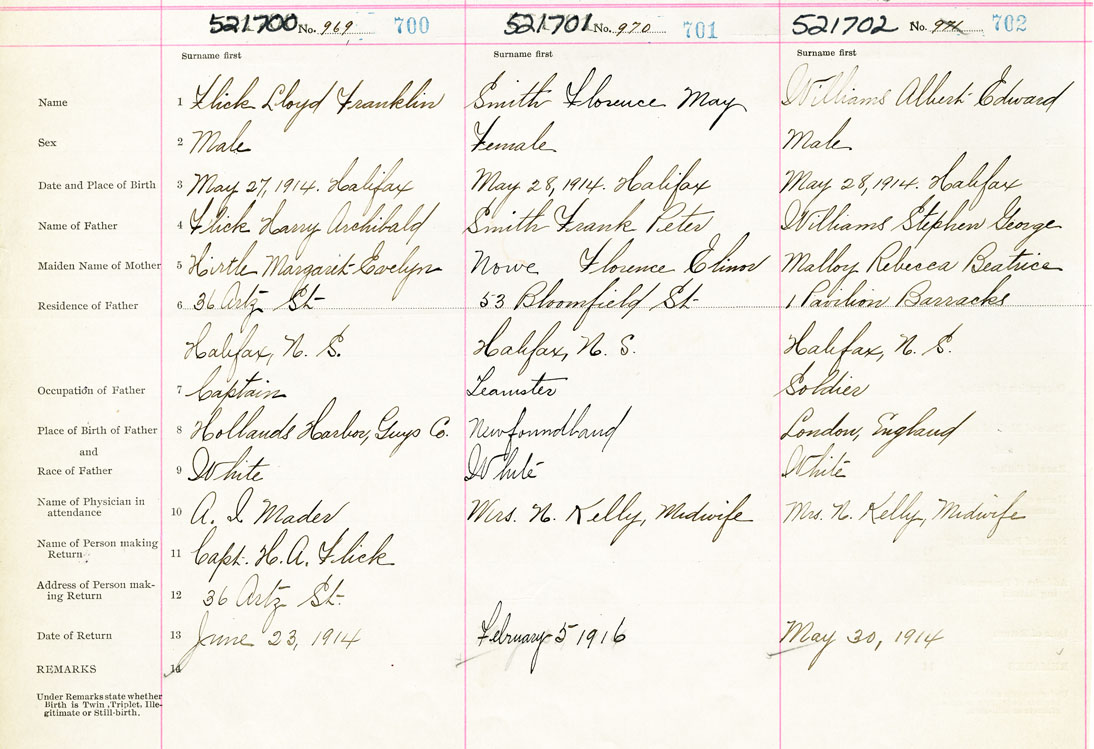 521700 No. 969 700 521701 No. 970 701 521702 No. 971 702
Surname first Surname first Surname first
Name 1 Flick Lloyd Franklin Smith Florence May Williams Albert Edward
Sex 2 Male Female Male
Date and Place of Birth 3 May 27, 1914. Halifax May 28, 1914. Halifax May 28, 1914. Halifax
Name of Father 4 Flick Harry Archibald Smith Frank Peter Williams Stephen George
Maiden Name of Mother 5 Hirtle Margaret Evelyn Nowe Florence Elinor Malloy Rebecca Beatrice
Residence of Father 6 36 Artz St 53 Bloomfield St 1 Pavilion Barracks
Halifax, N. S. Halifax, N. S. Halifax, N. S.
Occupation of Father 7 Captain Teamster Soldier
Place of Birth of Father 8 Hollands Harbor, Guys Co. Newfoundland London, England
and
Race of Father 9 White White White
Name of Physician in
attendance 10 A. I. Mader Mrs. N. Kelly, Midwife Mrs. N. Kelly, Midwife
Name of Person making
Return 11 Capt. H. A. Flick
Address of Person mak-
ing Return 12 36 Artz St.
Date of Return 13 June 23, 1914 February 5 1916 May 30, 1914
REMARKS 14
Under Remarks state whether
Birth is Twin, Triplet, Ille-
gitimate or Still-birth.